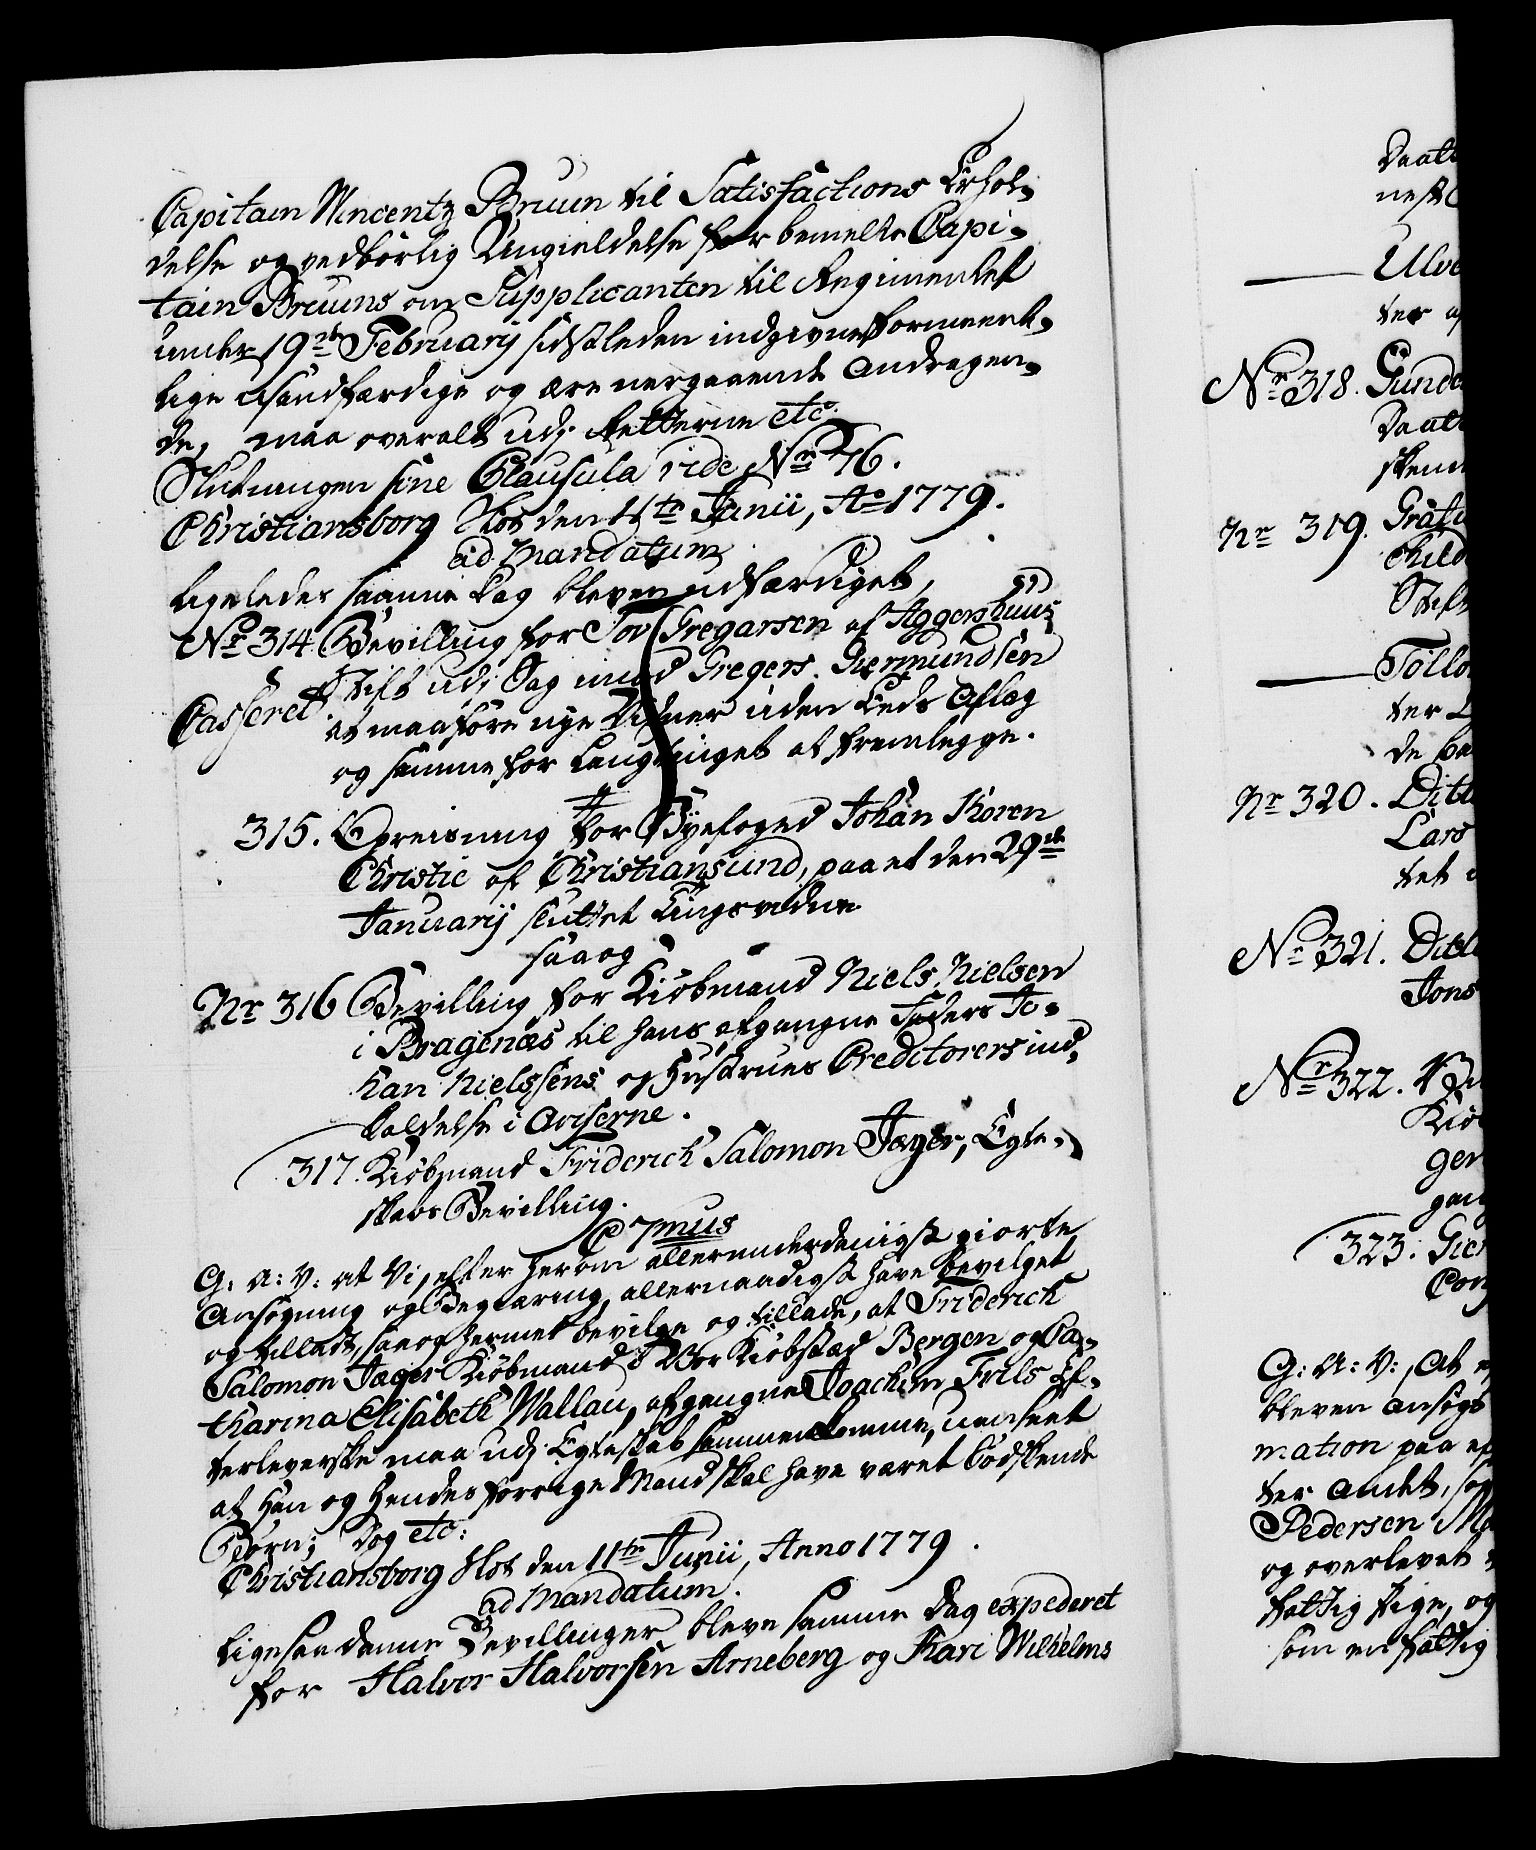 Capitain Wincentz Bruun til Satisfactions Erhol-
delse og vedbörlig Undgieldelse for bemelte Capi-
tain Bruuns om Supplicanten til Regimentet
under 19de February sidstleden indgivne formeent-
lige usandfærdige og ære nergaaende Andragen-
de, maa overalt udj Retterne etc.
Slutningen sine Clausula vide No 76.
Christiansborg Slot den 11te Junii, Ao 1779.
ad mandatum
Ligeledes samme Dag bleven udfærdiget,
No 314 Bevilling for Tov Gregarsen af Aggershuus
Stift udj Sag imod Gregers Giermundsen
Casseret.
at maa före nye Vidner uden Eeds Aflæg
og samme for Laugtinget at fremlegge.
315. Opreisning for Byefoged Johan Koren
Christie af Christiansund, paa et den 29de
Januarij sluttet Tingsvidne
saa og
Nr 316 Bevilling for Kiöbmand Niels Nielsen
i Bragenæs til hans afgangne Faders Jo-
han Nielssens og Hustrues Creditorers ind-
kaldelse i Aviserne.
317. Kiöbmand Friderich Salomon Jæger, Egte-
skabs Bevilling.
C 7mus
G: A: V: at Vi, efter herom allerunderdanigst giorte
Ansögning og Begiæring, allernaadigst have bevilget
og tilladt, saa og hermed bevilge og tillade, at Friderich
Salomon Jæger Kiöbmand i Vor Kiöbstad Bergen og Ca-
tharina Elisabeth Wallau, afgangne Joachim Frils Ef-
terleverske maa udj Egteskab sammenkomme, uanseet
at Han og Hendes forrige Mand skal have været Södskende
Börn; Dog etc:
Christiansborg Slot den 11te Junii, Anno 1779.
ad mandatum.
Ligesaadanne Bevillinger bleve samme Dag expederet
for Halvor Halvorsen Arneberg og Kari Wilhelms
Daatt
nestl
Ulve
ter af
No 318. Gunde
Daatt
skend
Nr 319.
Child
Stift
Tollo
ter
de be
Nr 320. Ditt
Lars
tet
No 321. Ditt
Jons
No 322.
Kiö
ger
gan
323. Gier
Con
G: A: V:, At
bleven ansögt
mation paa
ter andet, so
Pedersen
og overlevet
fattig Pige, og
som en fattig